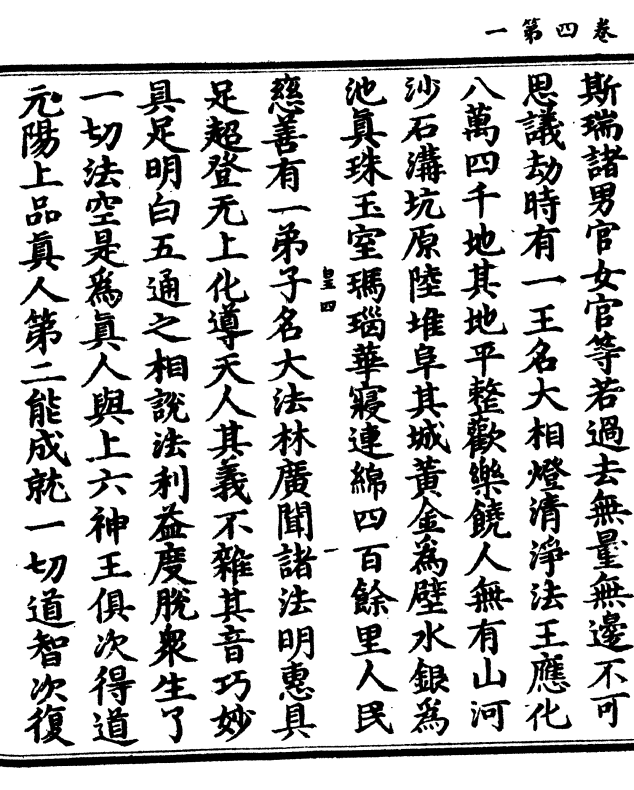 卷四第一
斯瑞諸男官女官等若過去無量無邊不可
思議劫時有一王名大相燈清淨法王應化
八萬四千地其地平整歡樂饒人無有山河
沙石溝坑原陸堆阜其城黃金為壁水銀為
池真珠玉室瑪瑙華寢連綿四百餘里人民
皇四
一
慈善有一弟子名大法林廣聞諸法明惠具
足超登无上化導天人其義不雜其音巧妙
具足明白五通之相說法利益度脫衆生了
一切法空是為真人與上六神王俱次得道
元陽上品真人第二能成就一切道智次復